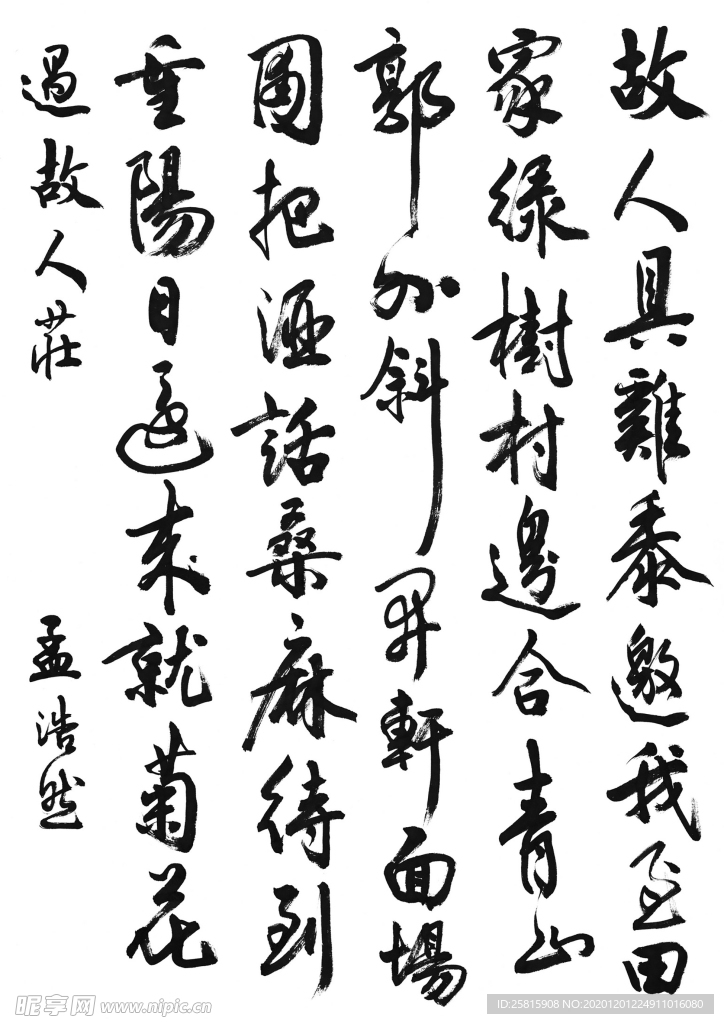 故人具雞黍邀我至田
家綠樹村邊合青山
郭外斜開軒面場
圃把酒話桑麻待到
重陽日還來就菊花
過故人莊 孟浩然
昵享网 www.nipic.cn
ID:25815908 NO:20201201224911016080